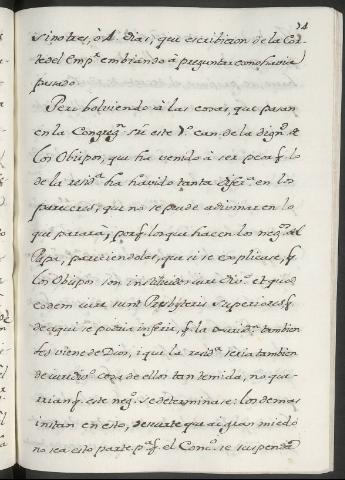 14
sino tres, ò 4. dias, que escribieron de la Cor-
te del Emp.ʳ embiando à preguntar como havia
pasado.
Pero bolviendo à las cosas, que pasan
en la Congreg.ⁿ sre este 7.º can. de la dign.ᵈ de
los Obispos, que ha venido à ser peor q lo
de la resid.ª ha havido tanta difer.ª en los
pareceres, que no se puede adivinar en lo
que pararà; porq los que hacen los neg.ˢ del
Papa, pareciendoles, que si se explicase, q
los Obispos son instituidos iure div.º et quod
eodem iure sunt Presbyteris Superiores q
de aqui se podria inferir, q la iurisd.ⁿ tambien
les viene de Dios, i que la resid.ª seria tambien
de iure div.º cosa de ellos tan temida, no que-
rrian q este neg.º se determinase: los demas
instan en esto, de suerte que ai gran miedo
no sea esto parte p.ª q el Conc.º se suspenda